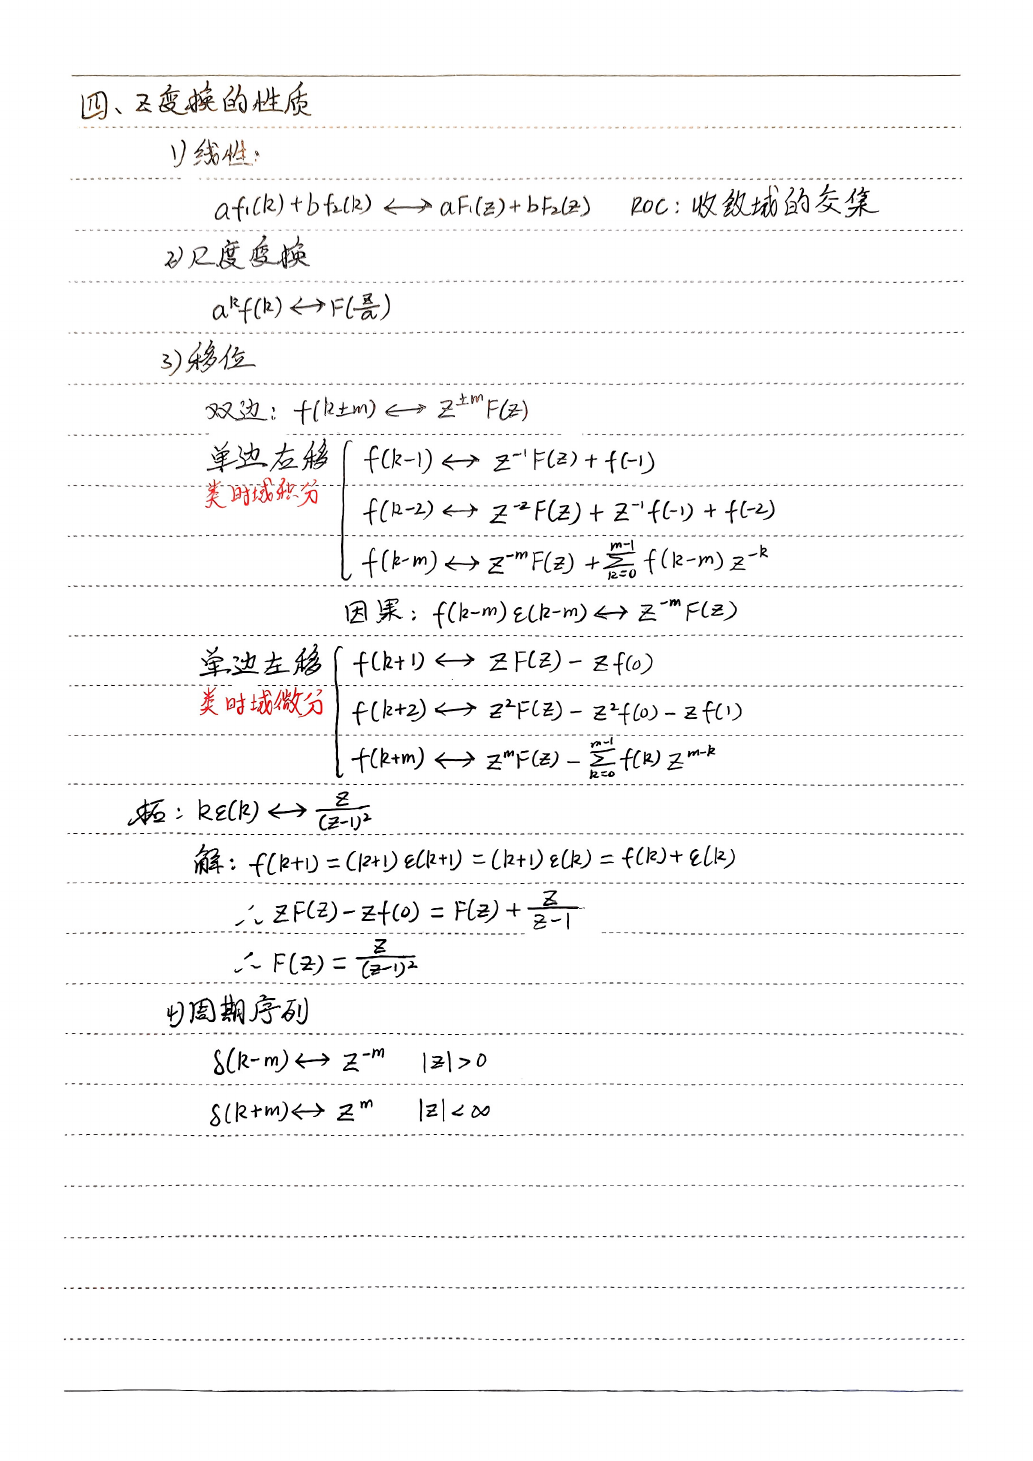 四、Z变换的性质
1) 线性:
af₁(k)+bf₂(k) ↔ aF₁(z)+bF₂(z) ROC: 收敛域的交集
2) 尺度变换
aᵏf(k) ↔ F(z/a)
3) 移位
双边: f(k±m) ↔ z^{±m}F(z)
单边右移 f(k-1) ↔ z⁻¹F(z) + f(-1)
类时域积分
f(k-2) ↔ z⁻²F(z) + z⁻¹f(-1) + f(-2)
f(k-m) ↔ z^{-m}F(z) + \sum_{k=0}^{m-1} f(k-m) z^{-k}
因果: f(k-m)ε(k-m) ↔ z^{-m}F(z)
单边左移 f(k+1) ↔ zF(z) - zf(0)
类时域微分 f(k+2) ↔ z²F(z) - z²f(0) - zf(1)
f(k+m) ↔ z^{m}F(z) - \sum_{k=0}^{m-1} f(k) z^{m-k}
拓: kε(k) ↔ z/(z-1)²
解: f(k+1) = (k+1)ε(k+1) = (k+1)ε(k) = f(k)+ε(k)
∴ zF(z) - zf(0) = F(z) + z/(z-1)
∴ F(z) = z/(z-1)²
4) 周期序列
δ(k-m) ↔ z^{-m} |z|>0
δ(k+m) ↔ z^{m} |z|<∞